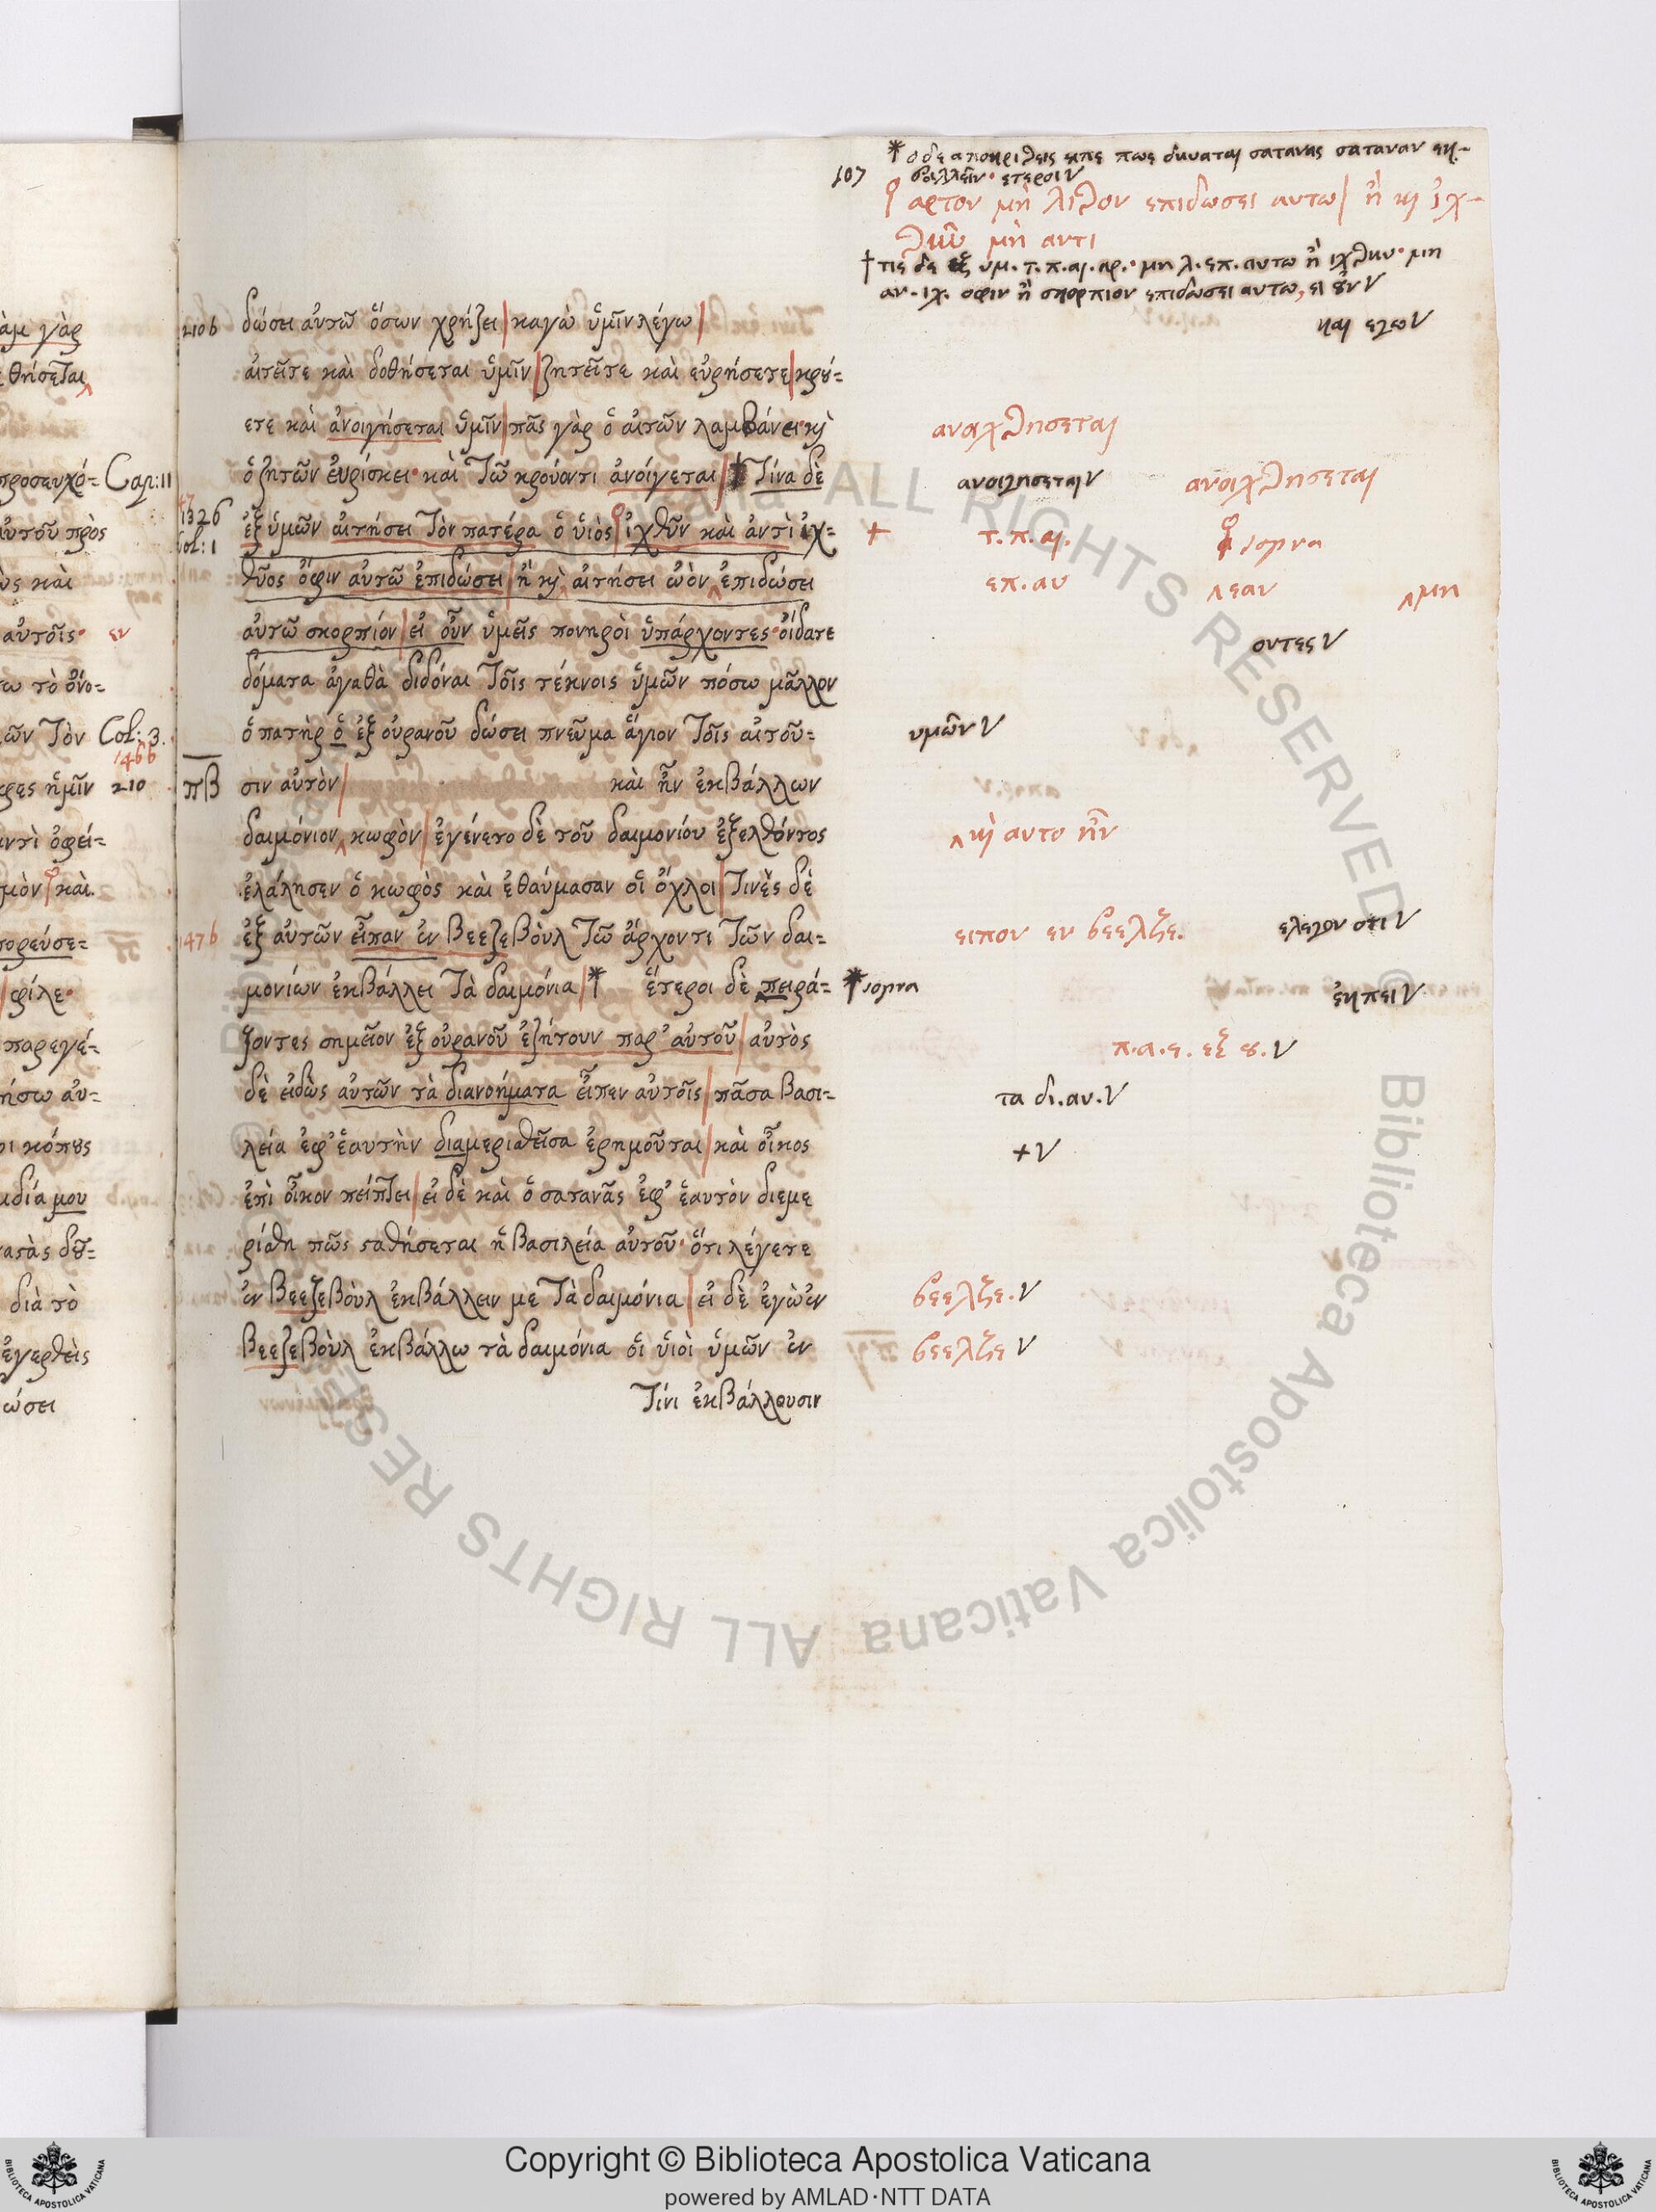 * ο δε αποκριθεις ειπε πως δυναται σατανας σαταναν εκ-
107 βαλλειν· ετεροι V
ϙ αρτον μὴ λιθον επιδωσει αυτω| ἢ κ̀ ἰχ-
θυν μὴ αντι
† τις δε εξ υμ. τ. π. αι. αρ.· μη λ. επ. αυτω ἢ ιχθυν· μη
αν. ιχ. οφιν ἢ σκορπιον επιδωσει αυτω, ει ȣν V
210b δώσει αὐτῶ ὅσων χρήζει| καγὼ ὑμῖν λέγω|
και εγω V
αἰτεῖτε καὶ δοθήσεται ὑμῖν| ζητεῖτε καὶ εὑρήσετε| κρȣ́=
ετε καὶ ἀνοιγήσεται ὑμῖν| πᾶς γὰρ ὁ αἰτῶν λαμβάνει· κ̀
αναχθησεται
ὁ ζητῶν ἑυρίσκει· καὶ Τῶ κρούοντι ἀνοίγεται| † Τίνα δὲ
ανοιγησεται V ανοιχθησεται
1326
Col: 1
ἐξ ὑμῶν αἰτήσει Τὸν πατέρα ὁ ὑιὸς ϙ| ἰχθῦν καὶ ἀντὶ ἰχ=
+ τ. π. αι. ϙ sopra
θῦος ὄφιν αὐτῶ ἐπιδώσει| ἢ κ̀ αἰτήσει ὠὸν ‸ ἐπιδώσει
επ. αυ ‸ εαν ‸ μη
αὐτῶ σκορπιόν| εἰ οὖν ὑμεῖς πονηροὶ ὑπάρχοντες· οἴδατε
οντες V
δόματα ἀγαθὰ διδόναι Τοῖς τέκνοις ὑμῶν πόσω μᾶλλον
ὁ πατὴρ ὁ ἐξ οὐρανοῦ δώσει πνεῦμα ἅγιον Τοῖς αἰτοῦ=
υμῶν V
πβ σιν αὐτὸν| καὶ ἦν ἐκβάλλων
δαιμόνιον ‸ κωφὸν| ἐγένετο δὲ τοῦ δαιμονίου ἐξελθόντος
‸ κ̀ αυτο ἦν
ἐλάλησεν ὁ κωφὸς καὶ ἐθαύμασαν οἱ ὄχλοι| Τινὲς δὲ
147b ἐξ αὐτῶν εἶπαν ἐν Βεεζεβὸυλ Τῶ ἄρχοντι Τῶν δαι=
ειπον εν βεελζε. ελεγον οτι V
μονίων ἐκβάλλει Τὰ δαιμόνια| * ἕτεροι δὲ πειρά=
* sopra ἐκπει V
ζοντες σημεῖον ἐξ οὐρανοῦ ἐζήτουν παρ' αὐτοῦ| αὐτὸς
π. α. ε. εξ ȣ. V
δὲ εἰδὼς αὐτῶν τὰ διανοήματα εἶπεν αὐτοῖς| πᾶσα βασι=
τα δι. αυ. V
λεία ἐφ' ἑαυτὴν διαμερισθεῖσα ἐρημοῦται| καὶ οἶκος
+ V
ἐπὶ οἶκον πείπτει| εἰ δὲ καὶ ὁ σατανᾶς ἐφ' ἑαυτὸν διεμε
ρίσθη πῶς σταθήσεται ἡ βασιλεία αὐτοῦ· ὅτι λέγετε
ἐν Βεεζεβὸυλ ἐκβάλλειν με Τὰ δαιμόνια| εἰ δὲ ἐγὼ ἐν
βεελζε. V
Βεεζεβὸυλ ἐκβάλλω τὰ δαιμόνια οἱ ὑιοὶ ὑμῶν ἐν
βεελζε V
Τίνι ἐκβάλλουσιν
γὰρ
θήσεται
προσευχό= Cap: 11
αὐτοῦ πρὸς
καὶ
αὐτοῖς· εν
τὸ ὄνο=
Τὸν Col: 3.
146b
ἡμῖν 210
ὀφεί=
καὶ
πορεύσε=
φίλε·
παρεγέ=
κόπȣς
μου
διὰ τὸ
ἐγερθεὶς
ώσει
Biblioteca Apostolica Vaticana ALL RIGHTS RESERVED ©
Copyright © Biblioteca Apostolica Vaticana
powered by AMLAD·NTT DATA
BIBLIOTECA APOSTOLICA VATICANA
BIBLIOTECA APOSTOLICA VATICANA